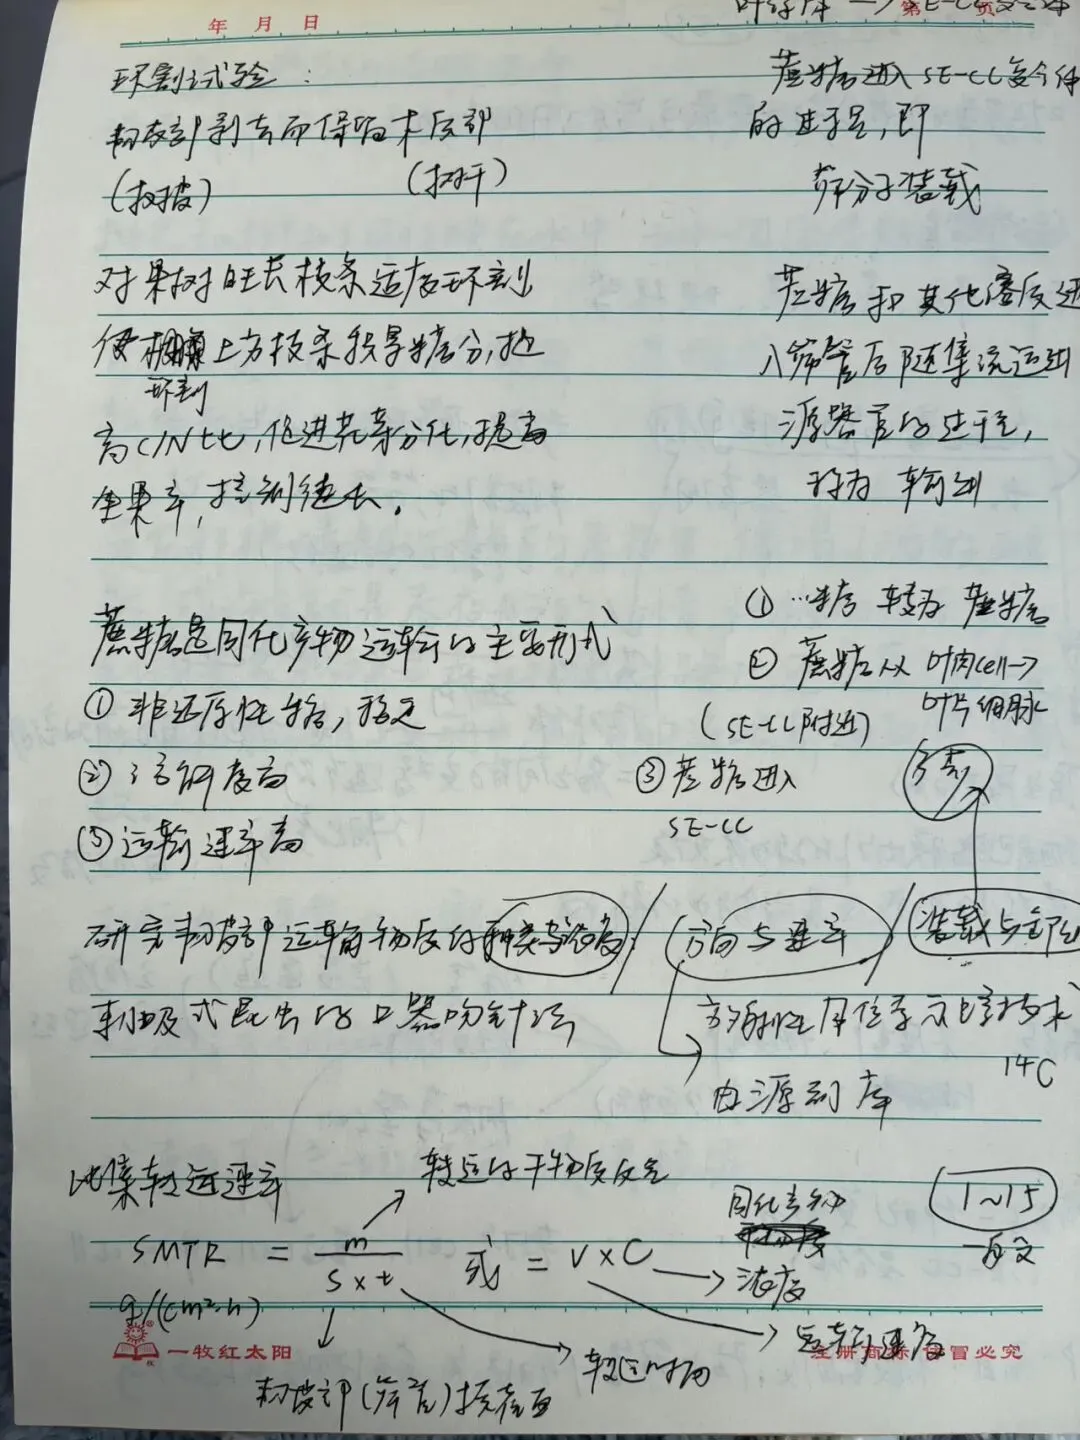 年 月 日
第 页
SE-CC复合体
环割试验：
韧皮部剥去而保留木质部
（树皮）（树干）
对果树旺长枝条适度环割
使上方枝条积累糖分，提
环割
高C/N比，促进花芽分化，提高
坐果率，控制徒长。
蔗糖是同化产物运输的主要形式
① 非还原性糖，稳定
② 溶解度高
③ 运输速率高
蔗糖进入 SE-CC复合体
的过程，即
筛分子装载
蔗糖和其他溶质进
入筛管后随集流运到
源器官的过程，
称为 输出
① …糖 转为 蔗糖
② 蔗糖从 叶肉cell→
（SE-CC附近） 叶片细脉
③ 蔗糖进入
SE-CC
分裂
研究韧皮部运输物质的种类与浓度/方向与速率/装载与卸出
刺吸式昆虫的口器吻针法
放射性同位素示踪技术
14C
由源到库
比集转运速率
转运的干物质质量
SMTR = m / S×t 或 = V×C
g/(cm²·h)
同化产物
浓度
1~15
一般
运输速度
转运时间
韧皮部（筛管）横截面
一牧红太阳
注册商标 仿冒必究